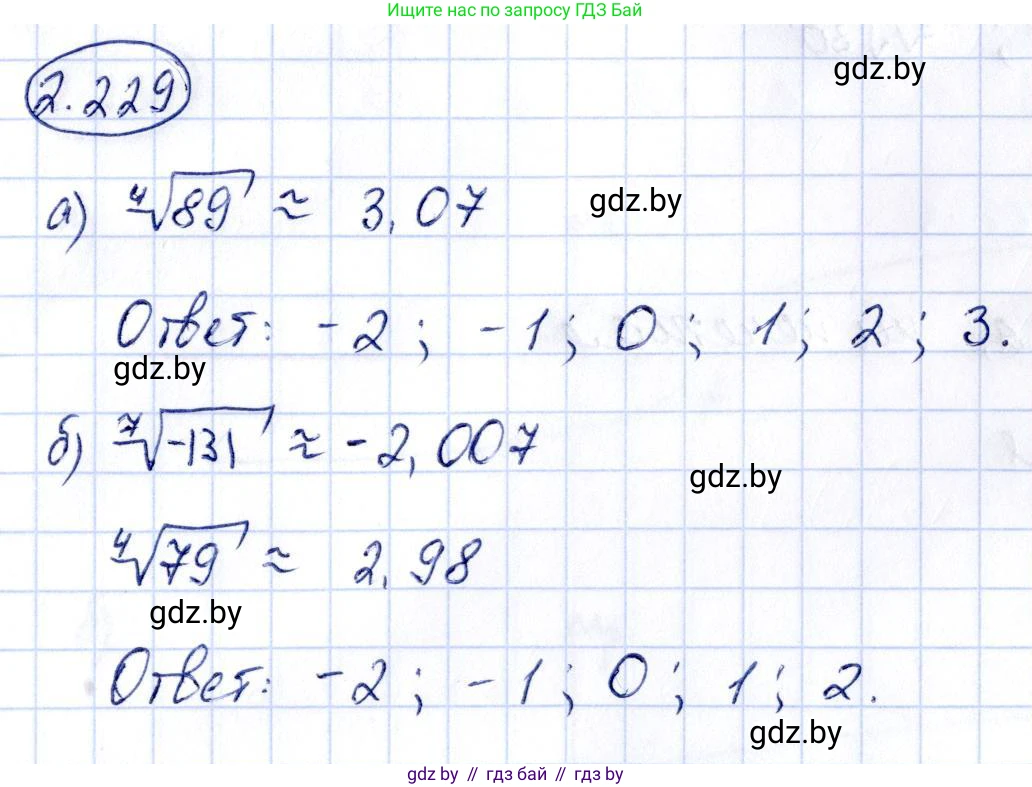 Ищите нас по запросу ГДЗ Бай
2.229
gdz.by
а) ⁴√89 ≈ 3,07
gdz.by
Ответ: -2; -1; 0; 1; 2; 3.
gdz.by
б) ⁷√-131 ≈ -2,007
gdz.by
⁴√79 ≈ 2,98
gdz.by
Ответ: -2; -1; 0; 1; 2.
gdz.by
gdz by // гдз бай // гдз by